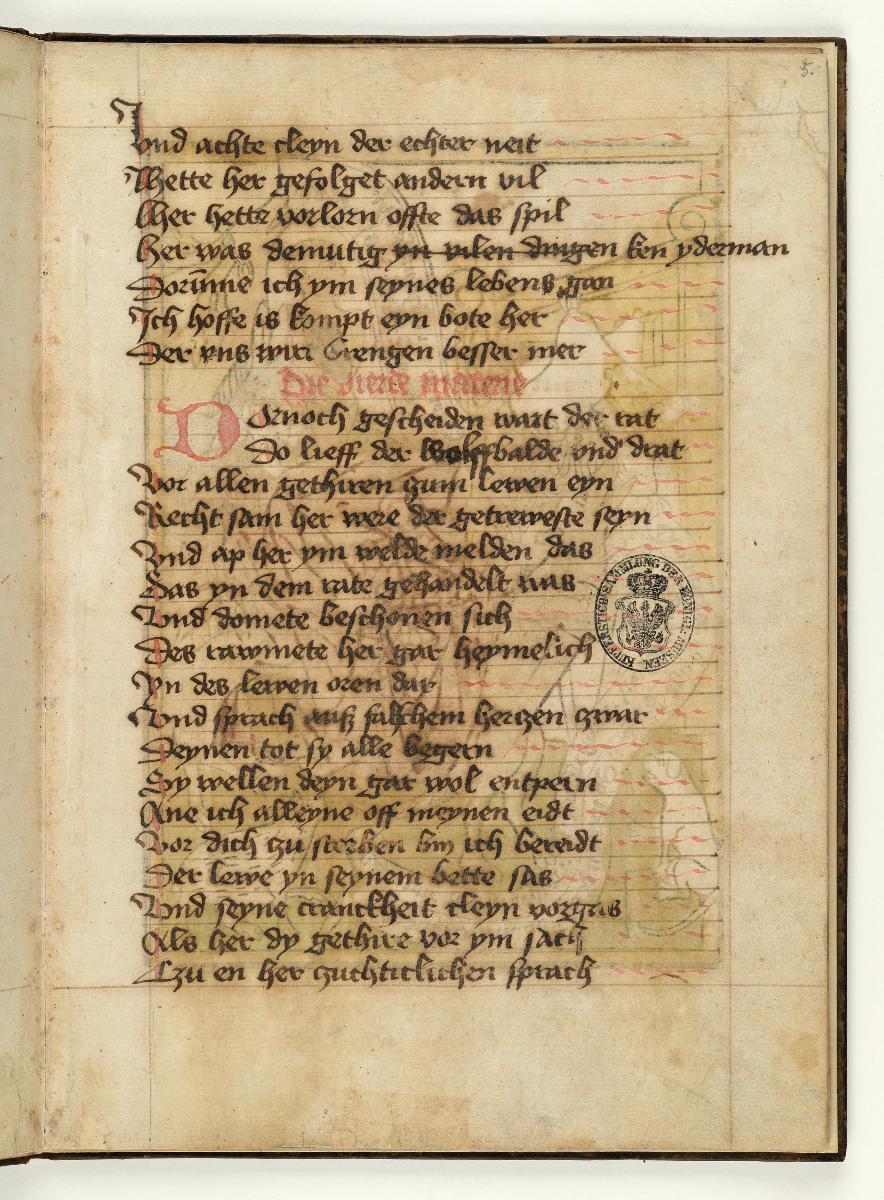 5.
Vnd achte cleyn der echter neit
Hette her gefolget andern vil
Her hette vorlorn offte das spil
Her was demutig yn vilen dingen ken yderman
Dorūme ich ym seynes lebens gan
Ich hoffe is kompt eyn bote her
Der vns wirt brengen besser mer
Die materie
Dornoch gescheiden wart der rat
Do lieff der wolff balde vnd drat
Vor allen gethiren zum lewen eyn
Recht sam her were der getreweste seyn
Vnd ap her ym welde melden das
Das yn dem rate gehandelt was
Vnd domete beschonen sich
Des rawmete her gar heymelich
Yn des lewen oren dar
Vnd sprach auß falschem herczen czwar
Deynen tot sy alle begern
Sy wellen deyn gar wol entpern
Ane ich alleyne off meynen eidt
Vor dich czu sterben bin ich bereidt
Der lewe yn seynem bette sas
Vnd seyne cranckheit cleyn vorgas
Als her dy gethire vor ym sach
Czu en her czuchticlichen sprach
KUPFERSTICH-SAMMLUNG DER KÖNIGL. MUSEEN